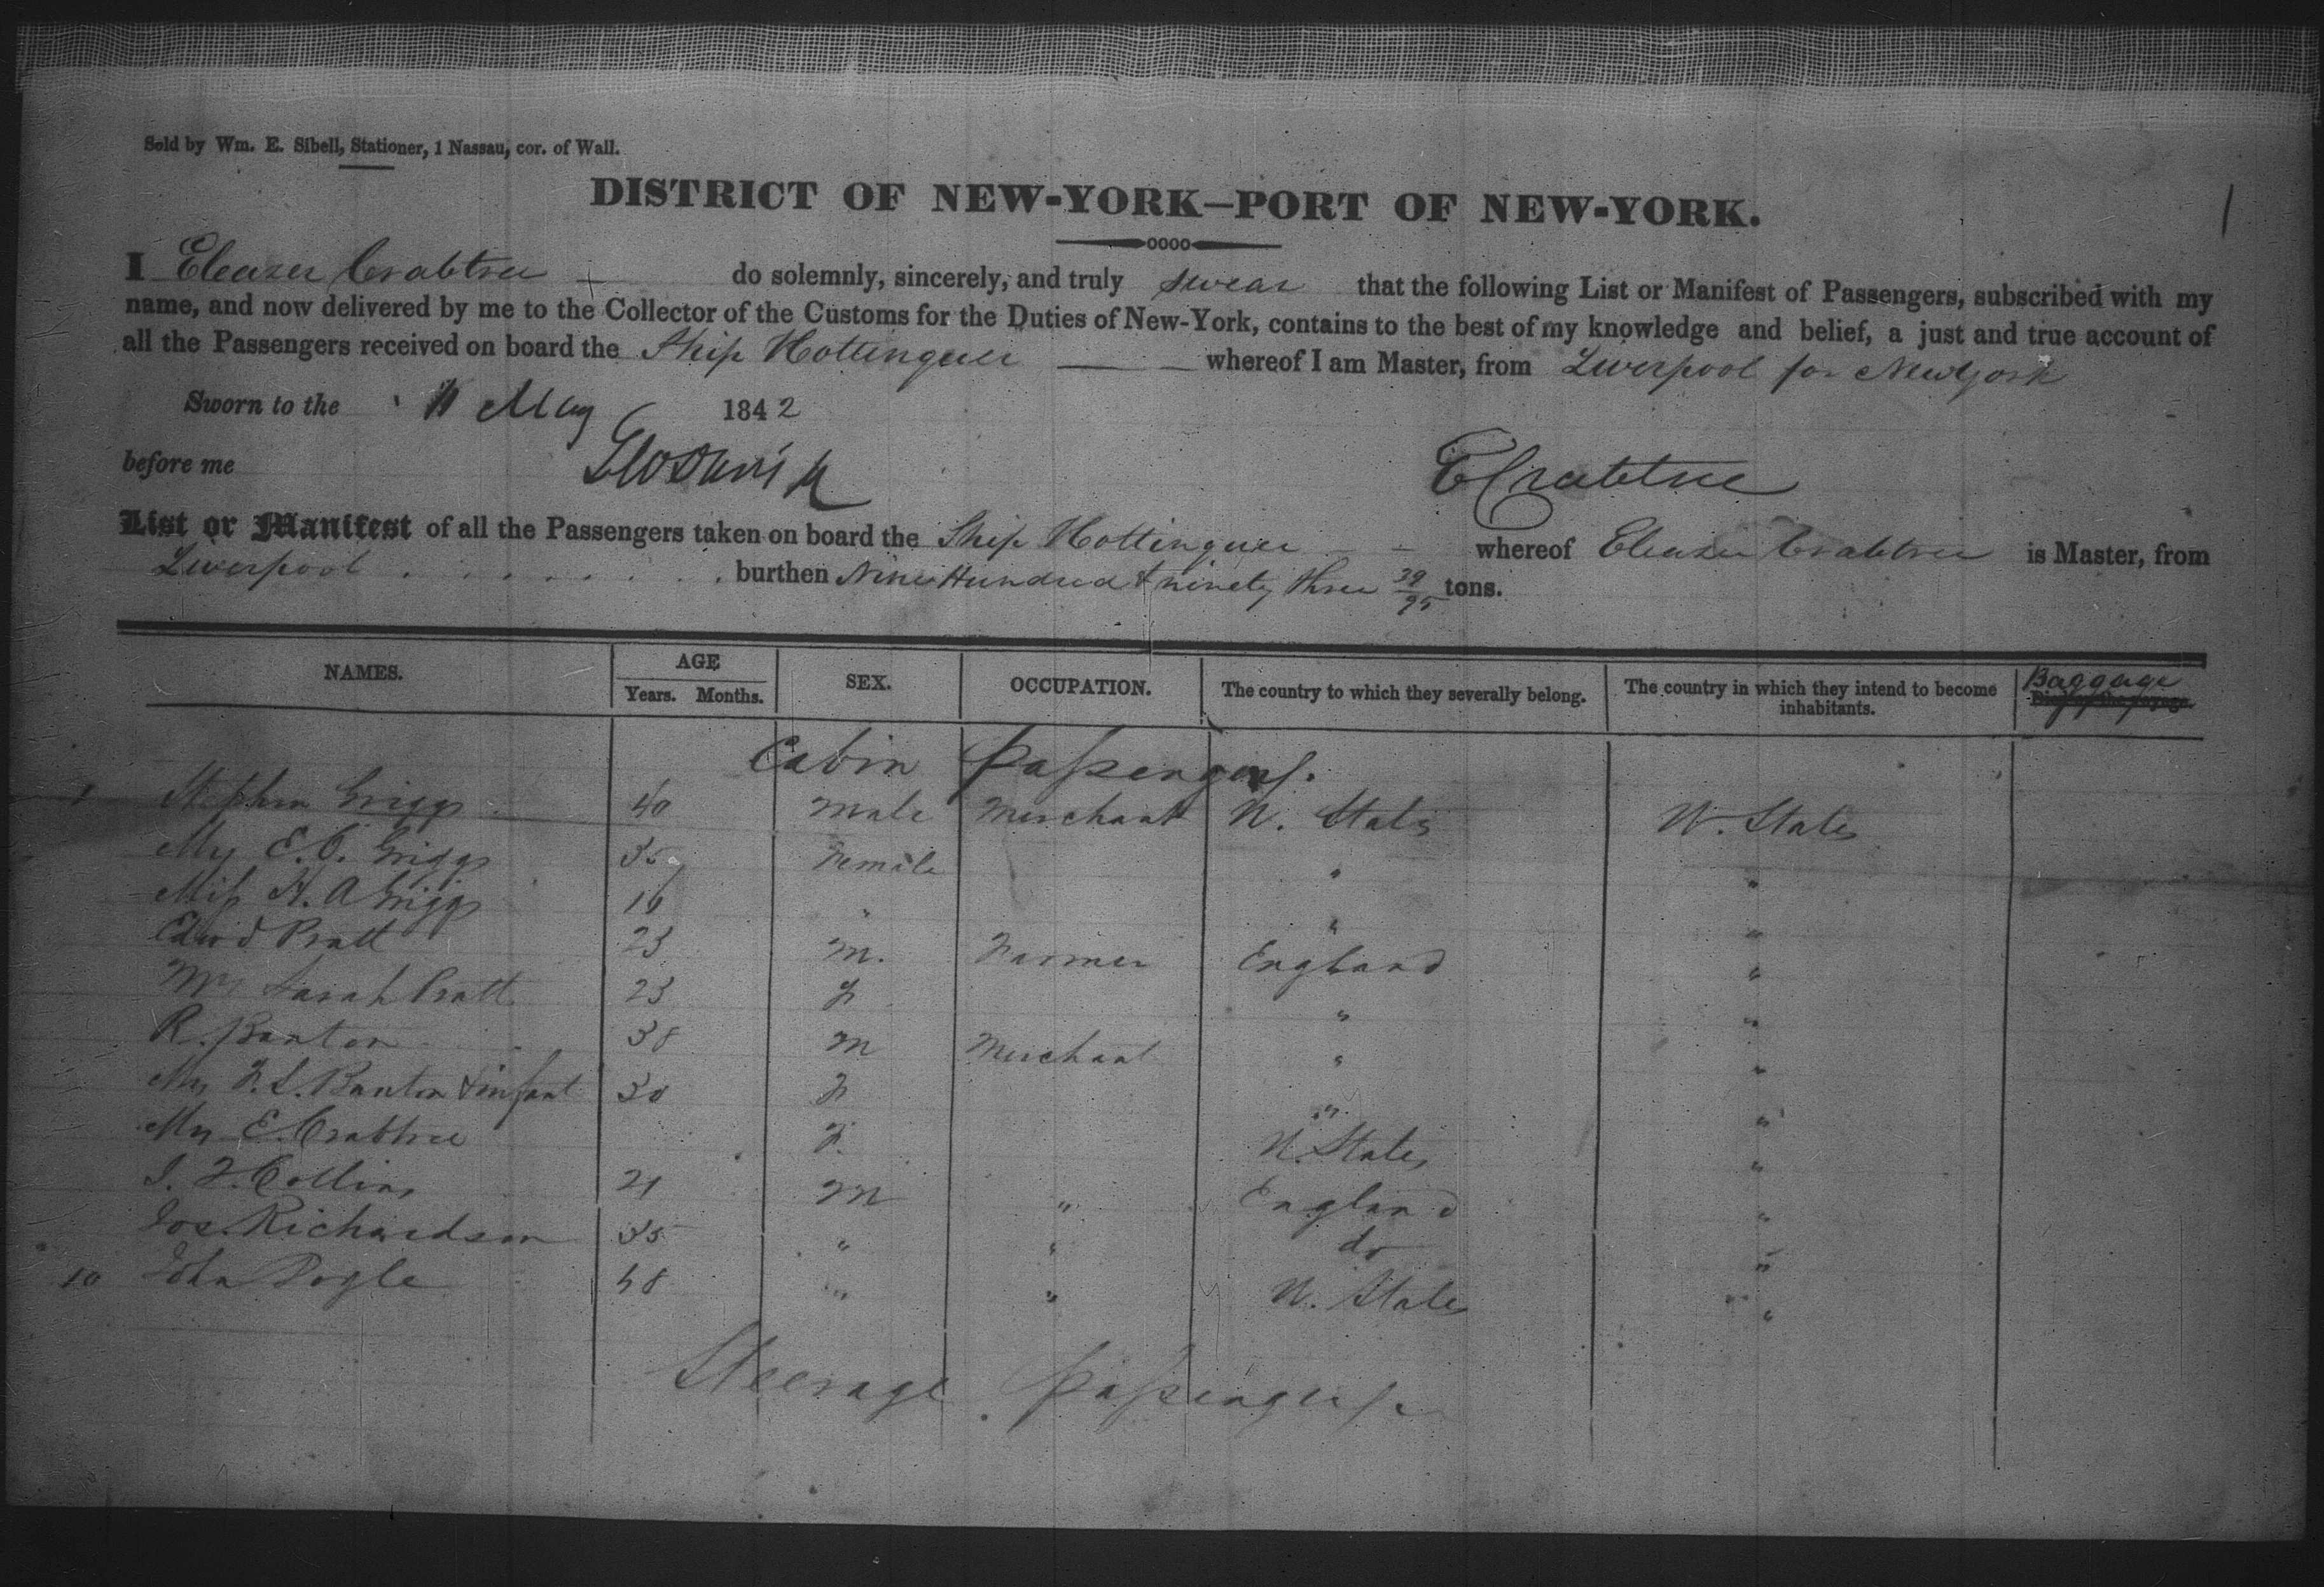 Sold by Wm. E. Sibell, Stationer, 1 Nassau, cor. of Wall.
1
DISTRICT OF NEW-YORK—PORT OF NEW-YORK.
I Eleazer Crabtree do solemnly, sincerely, and truly swear that the following List or Manifest of Passengers, subscribed with my
name, and now delivered by me to the Collector of the Customs for the Duties of New-York, contains to the best of my knowledge and belief, a just and true account of
all the Passengers received on board the Ship Hottinguer whereof I am Master, from Liverpool for New York
Sworn to the 11 May 1842
before me
E Crabtree
List or Manifest of all the Passengers taken on board the Ship Hottinguer whereof Eleazer Crabtree is Master, from
Liverpool burthen Nine Hundred & ninety three 39/95 tons.
NAMES. AGE Years. Months. SEX. OCCUPATION. The country to which they severally belong. The country in which they intend to become inhabitants. Baggage
Cabin Passengers.
1 Stephen Griggs 40 Male Merchant U. States U. States
Mrs E. C. Griggs 35 Female " "
Miss H. A Griggs 16 " " "
Edwd Pratt 23 M. Farmer England "
Mrs Sarah Pratt 23 F " "
R. Banton 38 M Merchant " "
Mrs F. S. Banton & infant 30 F " "
Mrs E. Crabtree F. U. States "
J. F. Collins 21 M " England "
Jos. Richardson 35 " " do "
10 John Pogle 48 " " U. States "
Steerage Passengers.